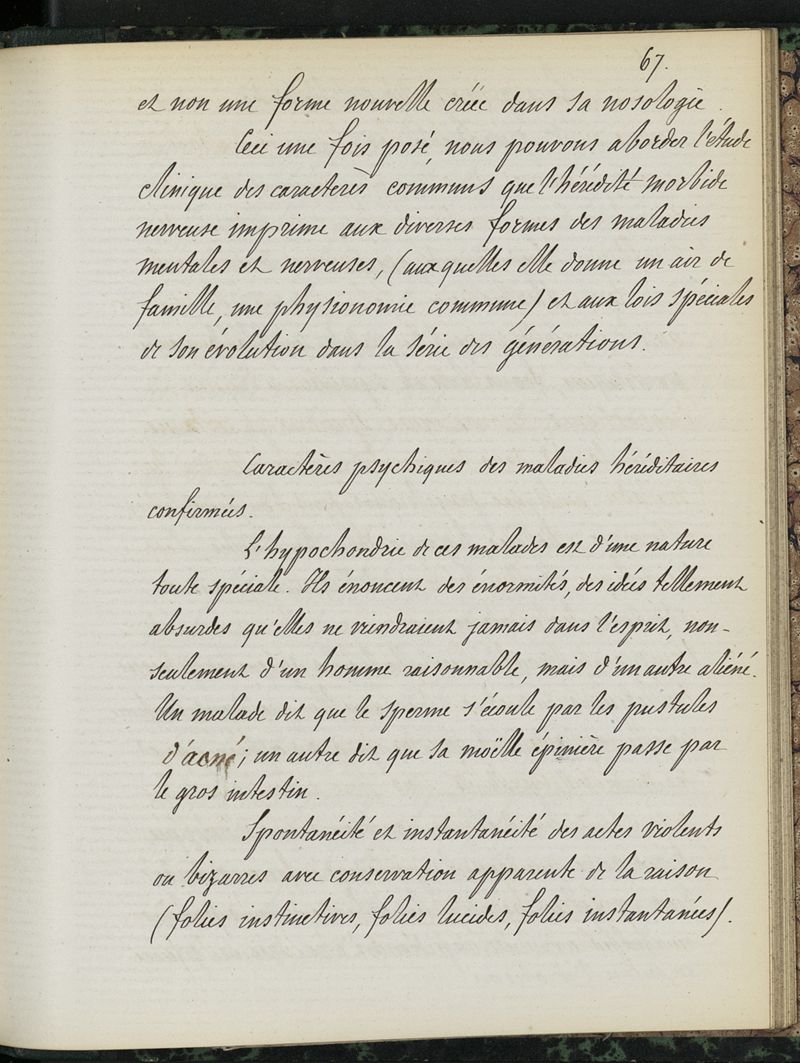 67.
et non une forme nouvelle créée dans sa nosologie.
Ceci une fois posé, nous pouvons aborder l'étude
clinique des caractères communs que l'hérédité morbide
nerveuse imprime aux diverses formes des maladies
mentales et nerveuses, (auxquelles elle donne un air de
famille, une physionomie commune) et aux lois spéciales
de son évolution dans la série des générations.
Caractères psychiques des maladies héréditaires
confirmées.
L'hypochondrie de ces malades est d'une nature
toute spéciale. Ils énoncent des énormités, des idées tellement
absurdes qu'elles ne viendraient jamais dans l'esprit, non-
seulement d'un homme raisonnable, mais d'un autre aliéné.
Un malade dit que le sperme s'écoule par les pustules
d'acné; un autre dit que sa moëlle épinière passe par
le gros intestin.
Spontanéité et instantanéité des actes violents
ou bizarres avec conservation apparente de la raison
(folies instinctives, folies lucides, folies instantanées).